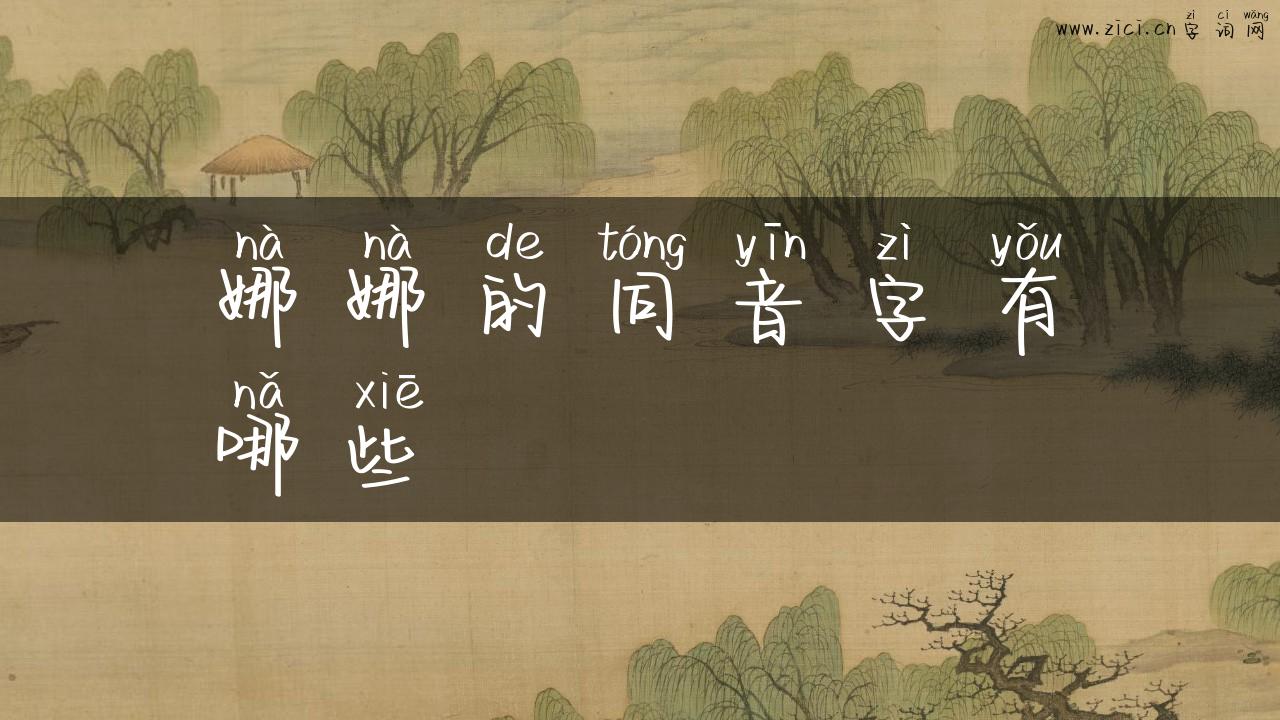 zì cí wǎng
www.zici.cn 字 词 网
nà nà de tóng yīn zì yǒu
娜 娜 的 同 音 字 有
nǎ xiē
哪 些